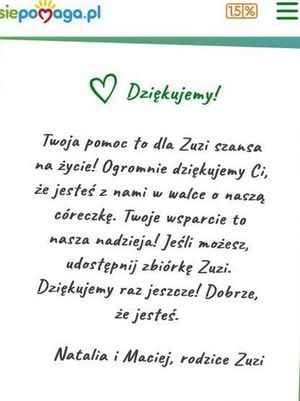 siepomaga.pl
1.5 %
Dziękujemy!
Twoja pomoc to dla Zuzi szansa
na życie! Ogromnie dziękujemy Ci,
że jesteś z nami w walce o naszą
córeczkę. Twoje wsparcie to
nasza nadzieja! Jeśli możesz,
udostępnij zbiórkę Zuzi.
Dziękujemy raz jeszcze! Dobrze,
że jesteś.
Natalia i Maciej, rodzice Zuzi